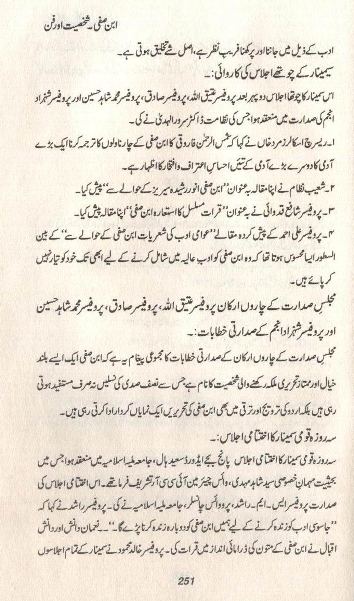 ابن صفی۔ شخصیت اور فن
ادب کے ذیل میں جاننا اور پرکھنا فریب نظر ہے، اصل شے تخلیق ہوتی ہے۔
سیمینار کے چوتھے اجلاس کی کاروائی:۔
اس سیمینار کا چوتھا اجلاس دوپہر بعد پروفیسر عتیق اللہ، پروفیسر صادق، پروفیسر محمد شاہد حسین اور پروفیسر شہزاد
انجم کی صدارت میں منعقد ہوا جس کی نظامت ڈاکٹر سرور الہدیٰ نے کی۔
۱۔ ریسرچ اسکالر زمرد خاں نے کہا کہ شمس الرحمٰن فاروقی کا ابن صفی کے چار ناولوں کا ترجمہ کرنا ایک بڑے
آدمی کا دوسرے بڑے آدمی کے تئیں احساسِ اعتراف و افتخار کا اظہار ہے۔
۲۔ شعیب نظام نے اپنا مقالہ بہ عنوان "ابن صفی انور رشیدہ سیریز کے حوالے سے" پیش کیا۔
۳۔ پروفیسر شافع قدوائی نے بہ عنوان "قرات مسلسل کا استعارہ ابن صفی" اپنا مقالہ پیش کیا۔
۴۔ پروفیسر علی احمد کے پیش کردہ مقالے "عوامی ادب کی شعریات ابن صفی کے حوالے سے" کے بین
السطور ایسا محسوس ہوتا تھا کہ وہ ابن صفی کو ادب عالیہ میں شامل کرنے کے لیے ابھی تک خود کو تیار نہیں
کر پائے ہیں۔
مجلس صدارت کے چاروں ارکان پروفیسر عتیق اللہ، پروفیسر صادق، پروفیسر محمد شاہد حسین
اور پروفیسر شہزاد انجم کے صدارتی خطابات:۔
مجلس صدارت کے چاروں ارکان کے صدارتی خطابات کا مجموعی پیغام یہ ہے کہ ابن صفی ایک ایسے بلند
خیال اور ممتاز تحریری ملکہ رکھنے والی شخصیت کا نام ہے جس سے نصف صدی کی نسلیں نہ صرف مستفید ہوتی
رہی ہیں بلکہ اردو کی ترویج اور ترقی میں بھی ابن صفی کی تحریریں ایک نمایاں کردار ادا کرتی رہی ہیں۔
سہ روزہ قومی سیمینار کا اختتامی اجلاس:۔
سہ روزہ قومی سیمینار کا اختتامی اجلاس پانچ بجے ایڈورڈ سعید ہال، جامعہ ملیہ اسلامیہ میں منعقد ہوا جس میں
بحیثیت مہمانِ خصوصی سید شاہد مہدی، وائس چیئرمین آئی سی سی آر تشریف فرما تھے۔ اس اختتامی اجلاس کی
صدارت پروفیسر ایس۔ ایم۔ راشد، پرو وائس چانسلر، جامعہ ملیہ اسلامیہ نے کی۔ پروفیسر راشد نے کہا کہ
"جاسوسی ادب کو زندہ کرنے کے لیے ہمیں ابن صفی کو دوبارہ زندہ کرنا پڑے گا۔"۔۔ نعمان دانش اور دانش
اقبال نے ابن صفی کے متون کی ڈرامائی انداز میں قرات کی۔ پروفیسر خالد محمود نے سیمینار کے تمام اجلاسوں
251